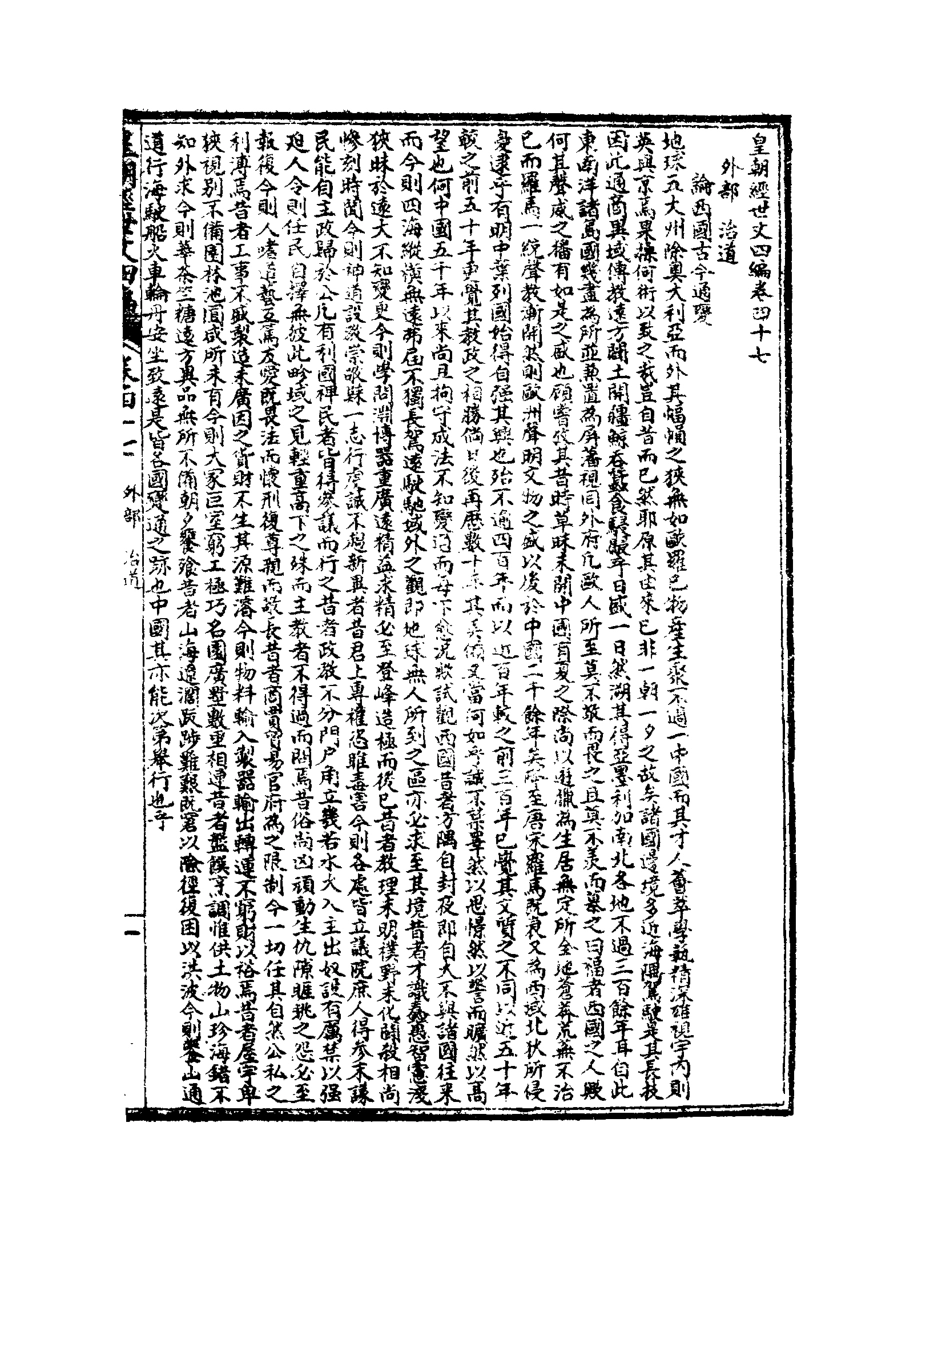 皇朝經世文四編卷四十七
外部　治道
論西國古今通變
地球五大州除奧大利亞而外其幅幀之狹無如歐羅巴物產生聚不過一中國而其才人薈萃學藝精深雄視宇內則
英與京焉果操何術以致之哉豈自昔而已然耶原其由來已非一朝一夕之故矣諸國邊境多近海隅駕駛是其長技
因此通商異域傳教遠方闢土開疆鯨吞蠶食駸駸乎日盛一日然溯其得亞墨利加南北各地不過三百餘年耳自此
東南洋諸島國幾盡為所並兼置為屏藩視同外府凡歐人所至莫不敬而畏之且莫不羨而慕之曰福者西國之人歟
何其聲威之播有如是之盛也顧嘗攷其昔時草昧未開中國有夏之際尚以遊獵為生居無定所全地蒼莽荒蕪不治
已而羅馬一統聲教漸開然則歐洲聲明文物之盛以後於中國二千餘年矣降至唐宋羅馬既衰又為西域北狄所侵
憂逮乎有明中葉列國始得自强其興也殆不過四百年而以近百年較之前三百年已覺其文質之不同以近五十年
較之前五十年更覺其教政之相勝倘日後再歷數十年其美備又當何如乎誠不禁睪然以思憬然以誓而曠然以高
望也何中國五千年以來尚且拘守成法不知變通而每下愈況歟試觀西國昔者方隅自封夜郎自大不與諸國往來
而今則四海縱橫無遠弗屆不獨長駕遠駛馳域外之觀即地球無人所到之區亦必求至其境昔者才識蠢愚智慮淺
狹昧於遠大不知變更今則學問淵博器重廣遠精益求精必至登峰造極而後已昔者教理未明樸野未化鬪殺相尚
慘刻時聞今則神道設教崇敬穌一志行虔誠不趨新異者昔君上專權恣睢毒害今則各處皆立議院庶人得參末議
民能自主政歸於公凡有利國裨民者皆得參議而行之昔者政教不分門戶角立幾若水火入主出奴設有厲禁以强
迫人令則任民自擇無彼此畛域之見輕重高下之殊而主教者不得過而問焉昔俗尚凶頑動生仇隙睚眦之怨必至
報復今則人嗜道藝互篤友愛既畏法而懷刑復尊親而敬長昔者商賈貿易官府為之限制今一切任其自然公私之
利溥焉昔者工事不盛製造未廣因之貨財不生其源難濬今則物料輸入製器輸出轉運不窮財以裕焉昔者屋宇卑
狹視別不備園林池囿咸所未有今則大家巨室窮工極巧名園廣墅數重相連昔者盤饌烹調惟供土物山珍海錯不
知外求今則華茶竺糖遠方異品無所不備朝夕饔飧昔者山海遼濶跋涉難艱既窘以險徑復困以洪波今則鑿山通
道行海駛船火車輪舟安坐致遠是皆各國變通之跡也中國其亦能次第舉行也乎
皇朝經世文四編　卷四十七　外部　治道　一